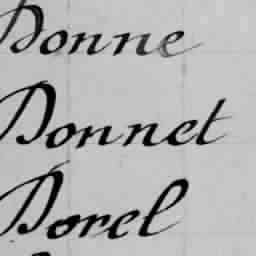 Donne
Donnet
Dorel